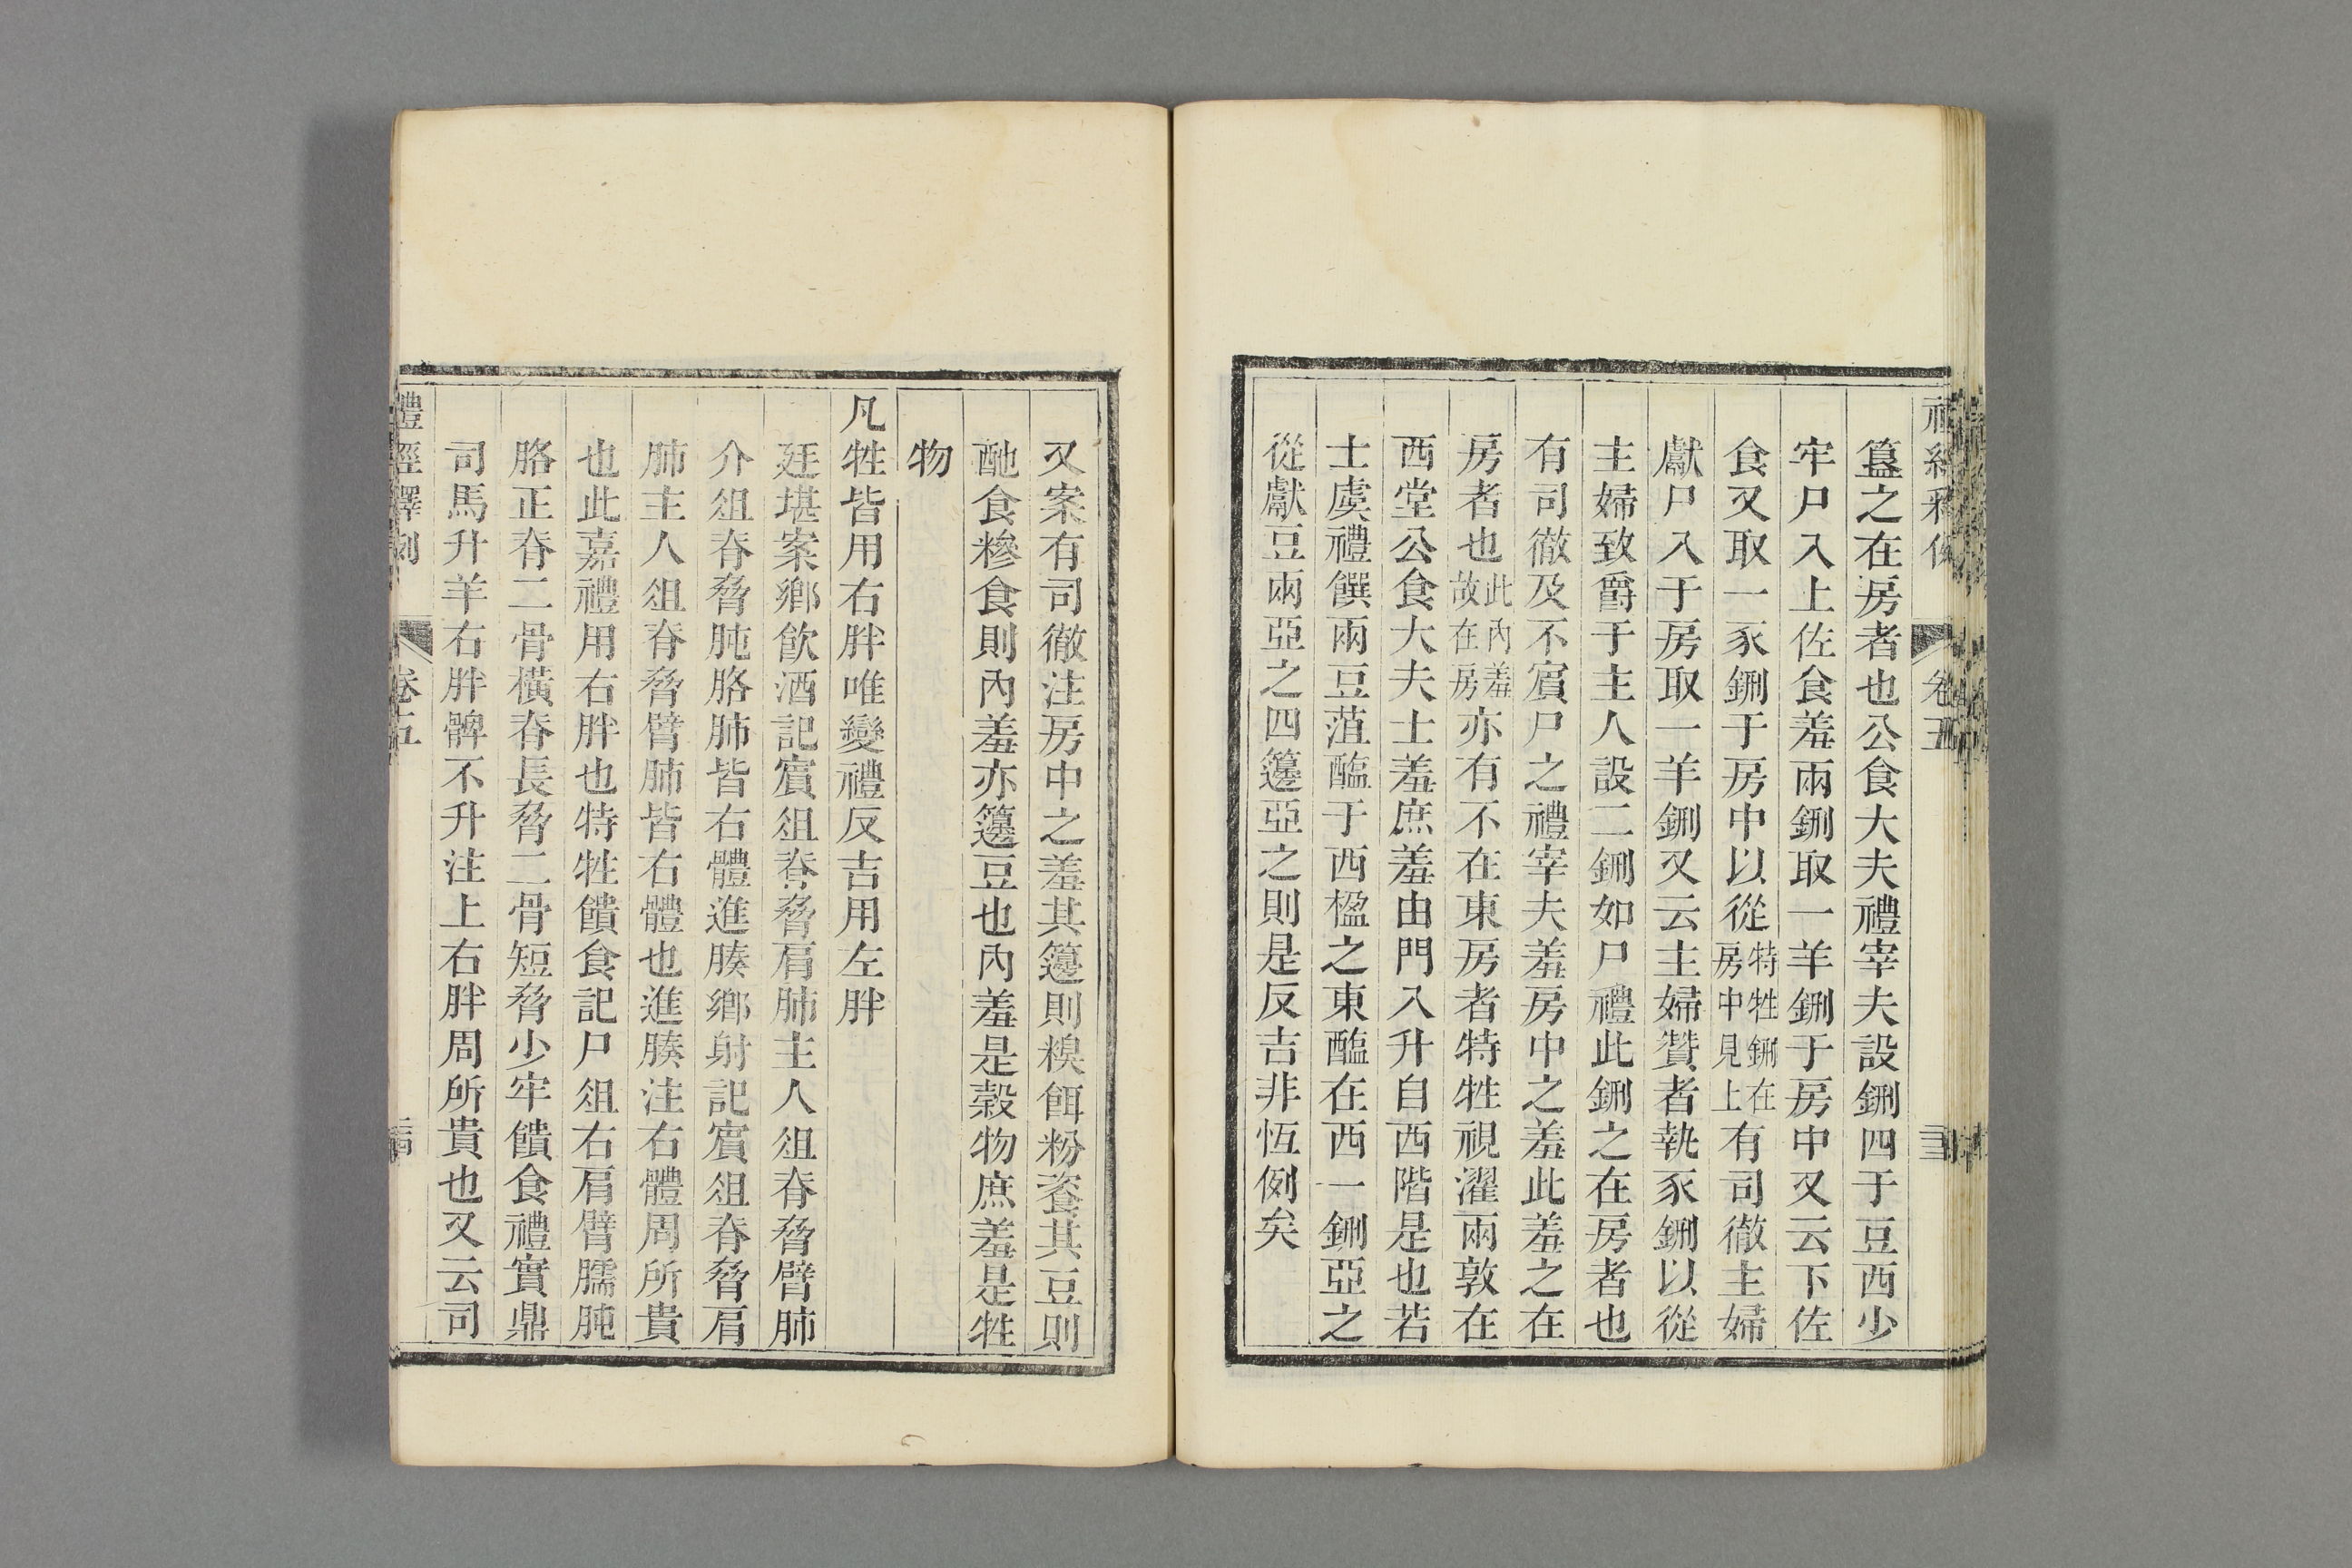 簋之在房者也公食大夫禮宰夫設鉶四于豆西少
牢尸入上佐食羞兩鉶取一羊鉶于房中又云下佐
食又取一豕鉶于房中以從特牲鉶在房中見上有司徹主婦
獻尸入于房取一羊鉶又云主婦贊者執豕鉶以從
主婦致爵于主人設二鉶如尸禮此鉶之在房者也
有司徹及不賓尸之禮宰夫羞房中之羞此羞之在
房者也此內羞故在房亦有不在東房者特牲視濯兩敦在
西堂公食大夫士羞庶羞由門入升自西階是也若
士虞禮饌兩豆菹醢于西楹之東醢在西一鉶亞之
從獻豆兩亞之四籩亞之則是反吉非恆例矣
又案有司徹注房中之羞其籩則糗餌粉餈其豆則
酏食糝食則內羞亦籩豆也內羞是穀物庶羞是牲
物
凡牲皆用右胖唯變禮反吉用左胖
廷堪案鄉飲酒記賓俎脊脅肩肺主人俎脊脅臂肺
介俎脊脅肫胳肺皆右體進腠鄉射記賓俎脊脅肩
肺主人俎脊脅臂肺皆右體也進腠注右體周所貴
也此嘉禮用右胖也特牲饋食記尸俎右肩臂臑肫
胳正脊二骨橫脊長脅二骨短脅少牢饋食禮實鼎
司馬升羊右胖髀不升注上右胖周所貴也又云司
禮經釋例 卷五